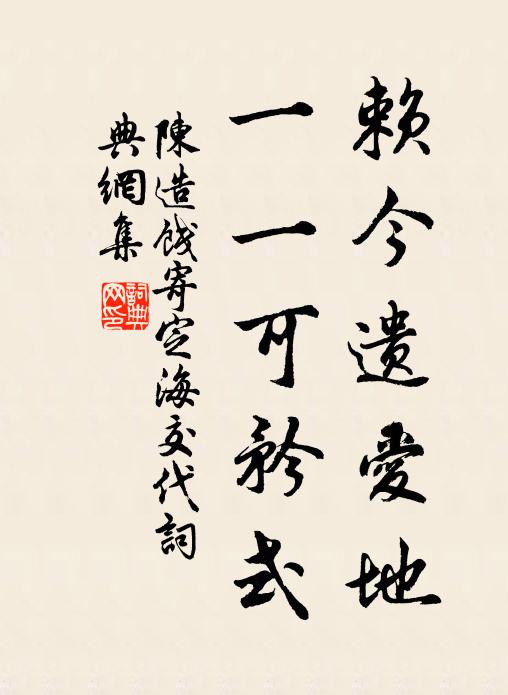 賴今遺愛地
一一可矜式
陳造餞寄定海交代詞
典網集
詞典
网印